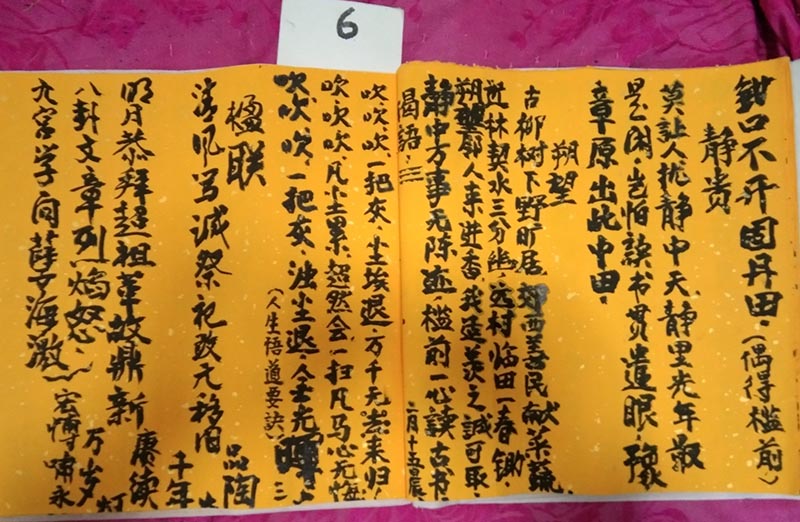 6
钳口不开固丹田。(偶得槛前)
静贵
莫让人扰静中天,静里光年最
是闲。岂怕读书贯遣眼,预
章原出此中田。
朔望
古柳树下野旷居,郊西善民献菜蔬,
近林契水三分幽,远村临田一春锄,
朔望邻人来进香,我造羡之诚可取,
静中万事无陈迹,槛前一心读古书
二月十五日辰
偈语:三
吹吹吹,一把灰,尘埃退,万千无恙来归!
吹吹吹,凡尘累,超然会,一扫凡马心无悔
吹吹吹,一把灰,浊尘退,人生光辉
(人生悟道要诀)
楹联
清风写诚祭祀改元移旧
品陶
明月恭拜超祖革故鼎新
千年
八卦文章烈焰怒
万岁
九字学问海激